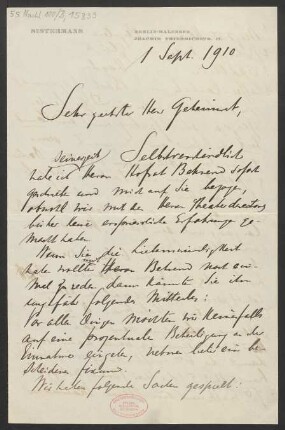 NIETHERMAN
BERLIN-HALENSEE
JOACHIM FRIEDRICHSTR.
1 Sept. 1910
Sehr geehrter Herr Geheimrat,
Selbstverständlich
habe ich seinerzeit Herrn Hofrat Behrend sofort
geschrieben und mich auf Sie bezogen,
obwohl wir mit den Herren Theaterdirectoren
bisher keine erfreuliche Erfahrungen ge-
macht haben.
Wenn Sie nun die Liebenswürdigkeit
hätte wollten Herrn Behrend noch ein-
mal zu reden, dann könnte Sie ihm
ungefähr folgendes Mitteilen:
Vor allen Dingen möchten wir Keinesfalls
auf eine procentuale Beteiligung an der
Einnahme eingehen, nehmen lieber ein be-
scheidenes fixum.
Wir haben folgende Sachen gespielt: